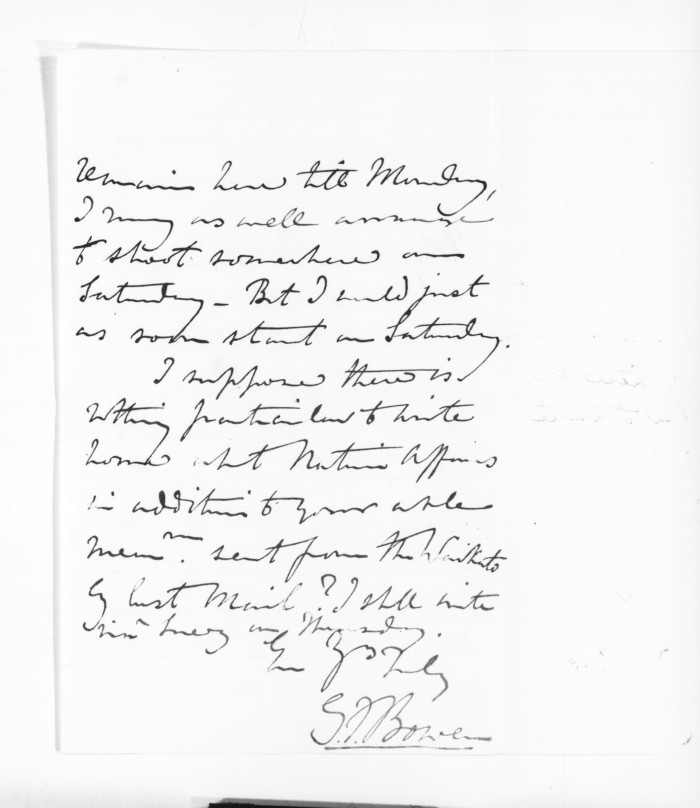 remain here till Monday,
I may as well arrange
to shoot somewhere on
Saturday - But I would just
as soon start on Saturday.
I suppose there is
nothing particular to write
home abt Native Affairs
in addition to your able
memm. sent from the Waikato
by last Mail? I shll write
on Thursday.
Yrs Truly
G.F. Bowen